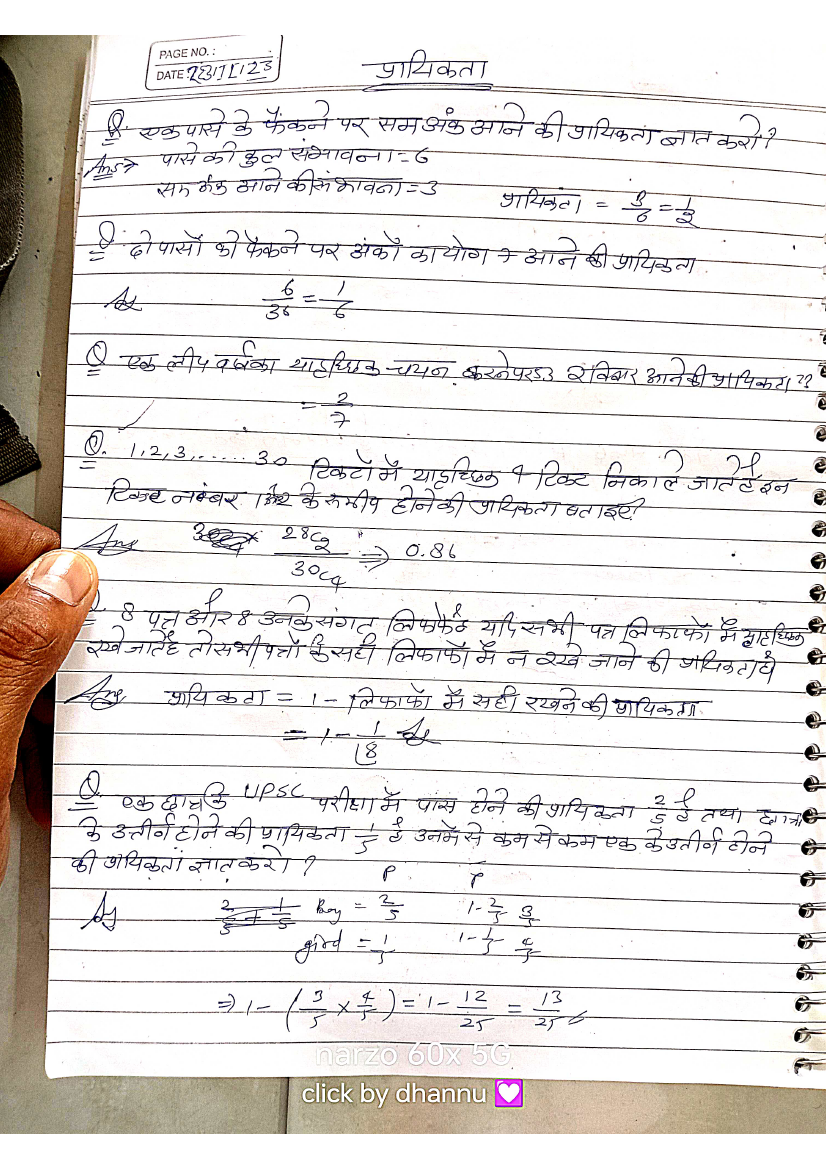 PAGE NO. :
DATE 23/11/23
प्रायिकता
Q. एक पासे के फैंकने पर सम अंक आने की प्रायिकता ज्ञात करो?
Ans → पासे की कुल संभावना = 6
सम अंक आने की संभावना = 3 प्रायिकता = 3/6 = 1/2
Q. दो पासों को फैंकने पर अंकों का योग 7 आने की प्रायिकता
Ans 6/36 = 1/6
Q एक लीप वर्ष का याद्दच्छिक चयन करने पर 53 रविवार आने की प्रायिकता ??
= 2/7
Q. 1, 2, 3, ...... 30 टिकटों में याद्दच्छिक 4 टिकट निकाले जाते हैं इन
टिकट नम्बर 1 और के होने की प्रायिकता बताइए?
Ans 28C2 / 30C4 ⇒ 0.86
8 पत्र और 8 उनके संगत लिफाफे है यदि सभी पत्र लिफाफों में याद्दच्छिक
रखे जाते है तो सभी पत्रों के सही लिफाफों में न रखे जाने की प्रायिकता
Ans प्रायिकता = 1 - लिफाफों में सही रखने की प्रायिकता
= 1 - 1/⌊8 Ans
Q. एक छात्र के UPSC परीक्षा में पास होने की प्रायिकता 2/5 है तथा छात्रा
के उत्तीर्ण होने की प्रायिकता 1/5 है उनमें से कम से कम एक के उत्तीर्ण होने
की प्रायिकता ज्ञात करो ?
P P̅
Ans Boy = 2/5 1-2/5 3/5
girl = 1/5 1-1/5 4/5
⇒ 1 - (3/5 × 4/5) = 1 - 12/25 = 13/25
narzo 60x 5G
click by dhannu 💟